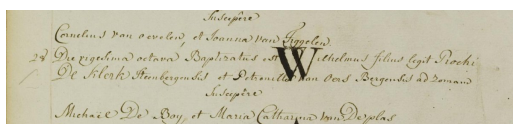 Susceptre
Cornelius van oevelen, et Joanna van Tiggelen
28 Die vigesima octava Baptizatus est Wilhelmus filius legit Rochi
De Klerk Steenbergensis et Petronella van Oers Bergensis ad Zomam
Susceptre
Michael De Boy, et Maria Catharina van De plas